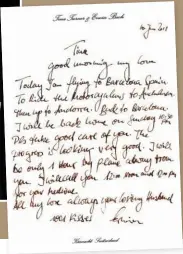 Tina Turner & Erwin Bach
Tina
good morning my love
Today I am flying to Barcelona Spain
To Ride the Motorcycles to Andorra
then up to Andorra / Back to Barcelona
I will be back home on Sunday 10:30
Pls take good care of you. The
progress is looking very good. I will
be only 1 hour by plane away from
you. I will call you 10 am and 10 pm
for your medicine.
All my love always your loving Husband
1001 Kisses Erwin
Küsnacht Switzerland